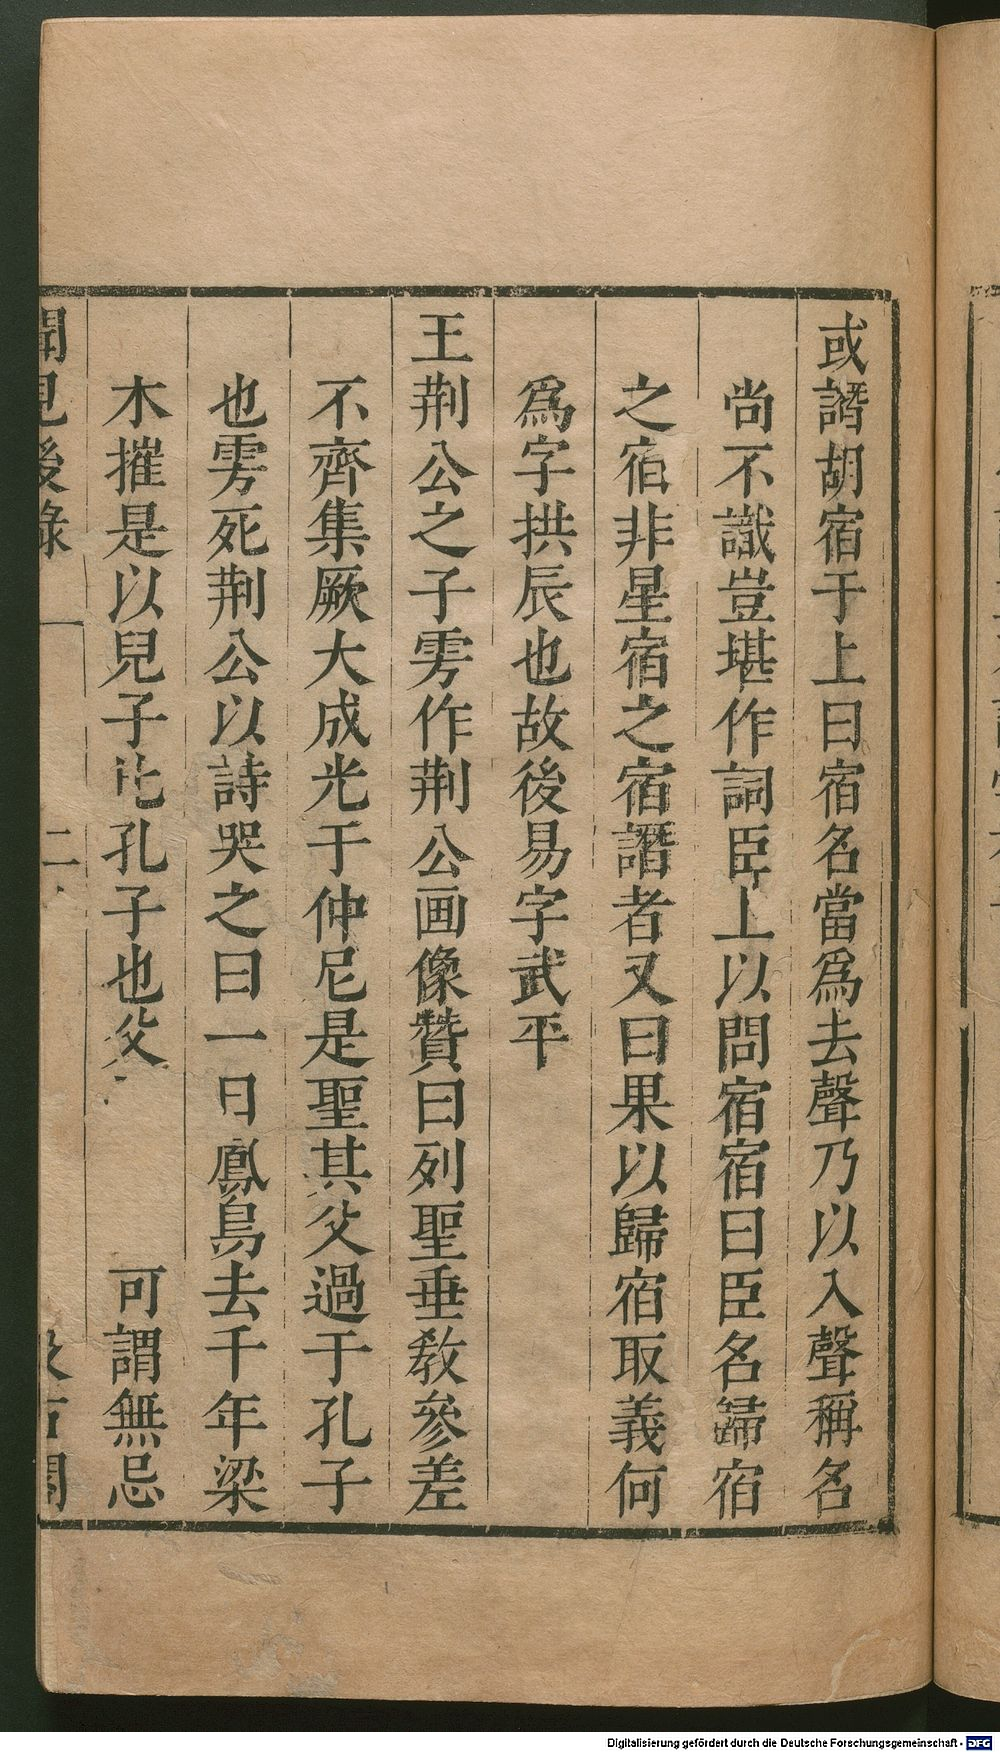 或譖胡宿于上曰宿名當爲去聲乃以入聲稱名
尚不識豈堪作詞臣上以問宿宿曰臣名歸宿
之宿非星宿之宿譖者又曰果以歸宿取義何
爲字拱辰也故後易字武平
王荆公之子雱作荆公画像贊曰列聖垂教參差
不齊集厥大成光于仲尼是聖其父過于孔子
也雱死荆公以詩哭之曰一日鳳鳥去千年梁
木摧是以兒子比孔子也父 可謂無忌
聞見後錄 二 汲古閣
Digitalisierung gefördert durch die Deutsche Forschungsgemeinschaft - DFG